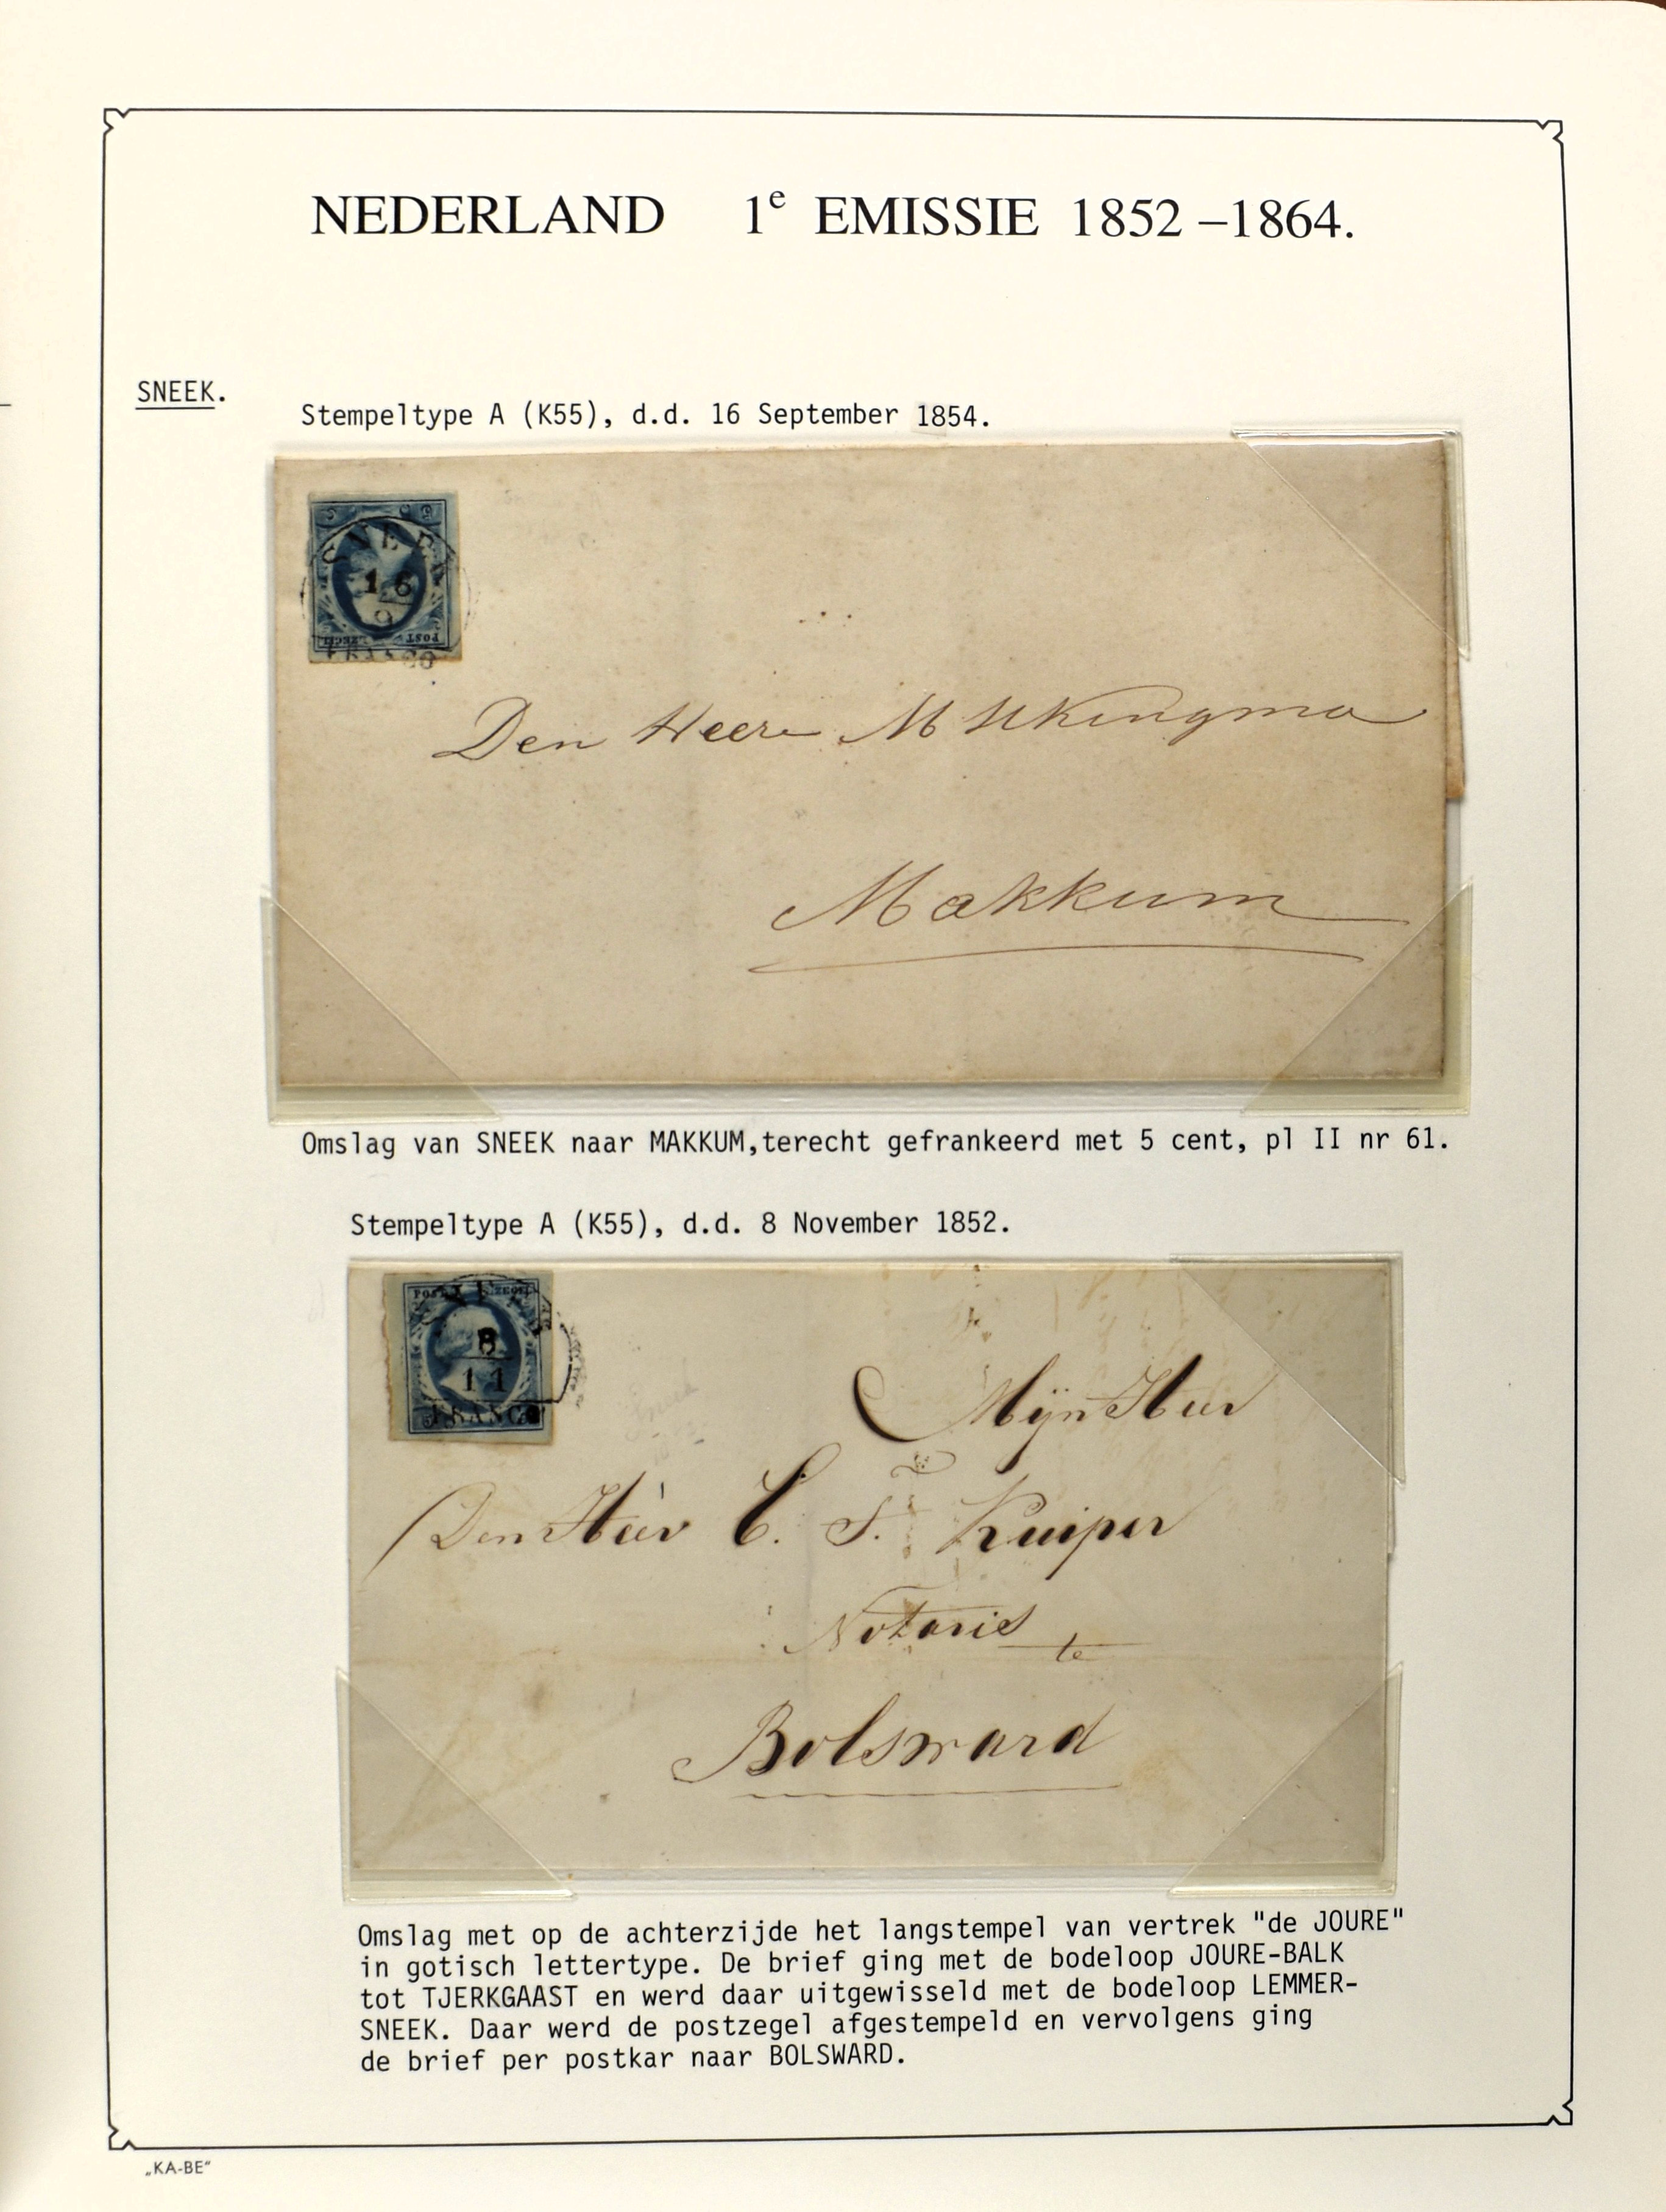 NEDERLAND 1e EMISSIE 1852 –1864.
SNEEK.
Stempeltype A (K55), d.d. 16 September 1854.
SNEEK
16
9
FRANCO
POST ZEGEL
Den Heere M Kingma
Makkum
Omslag van SNEEK naar MAKKUM,terecht gefrankeerd met 5 cent, pl II nr 61.
Stempeltype A (K55), d.d. 8 November 1852.
POST ZEGEL
8
11
FRANCO
Mijn Heer
Den Heer C. S. Kuiper
Notaris te
Bolsward
Omslag met op de achterzijde het langstempel van vertrek "de JOURE"
in gotisch lettertype. De brief ging met de bodeloop JOURE-BALK
tot TJERKGAAST en werd daar uitgewisseld met de bodeloop LEMMER-
SNEEK. Daar werd de postzegel afgestempeld en vervolgens ging
de brief per postkar naar BOLSWARD.
„KA-BE"